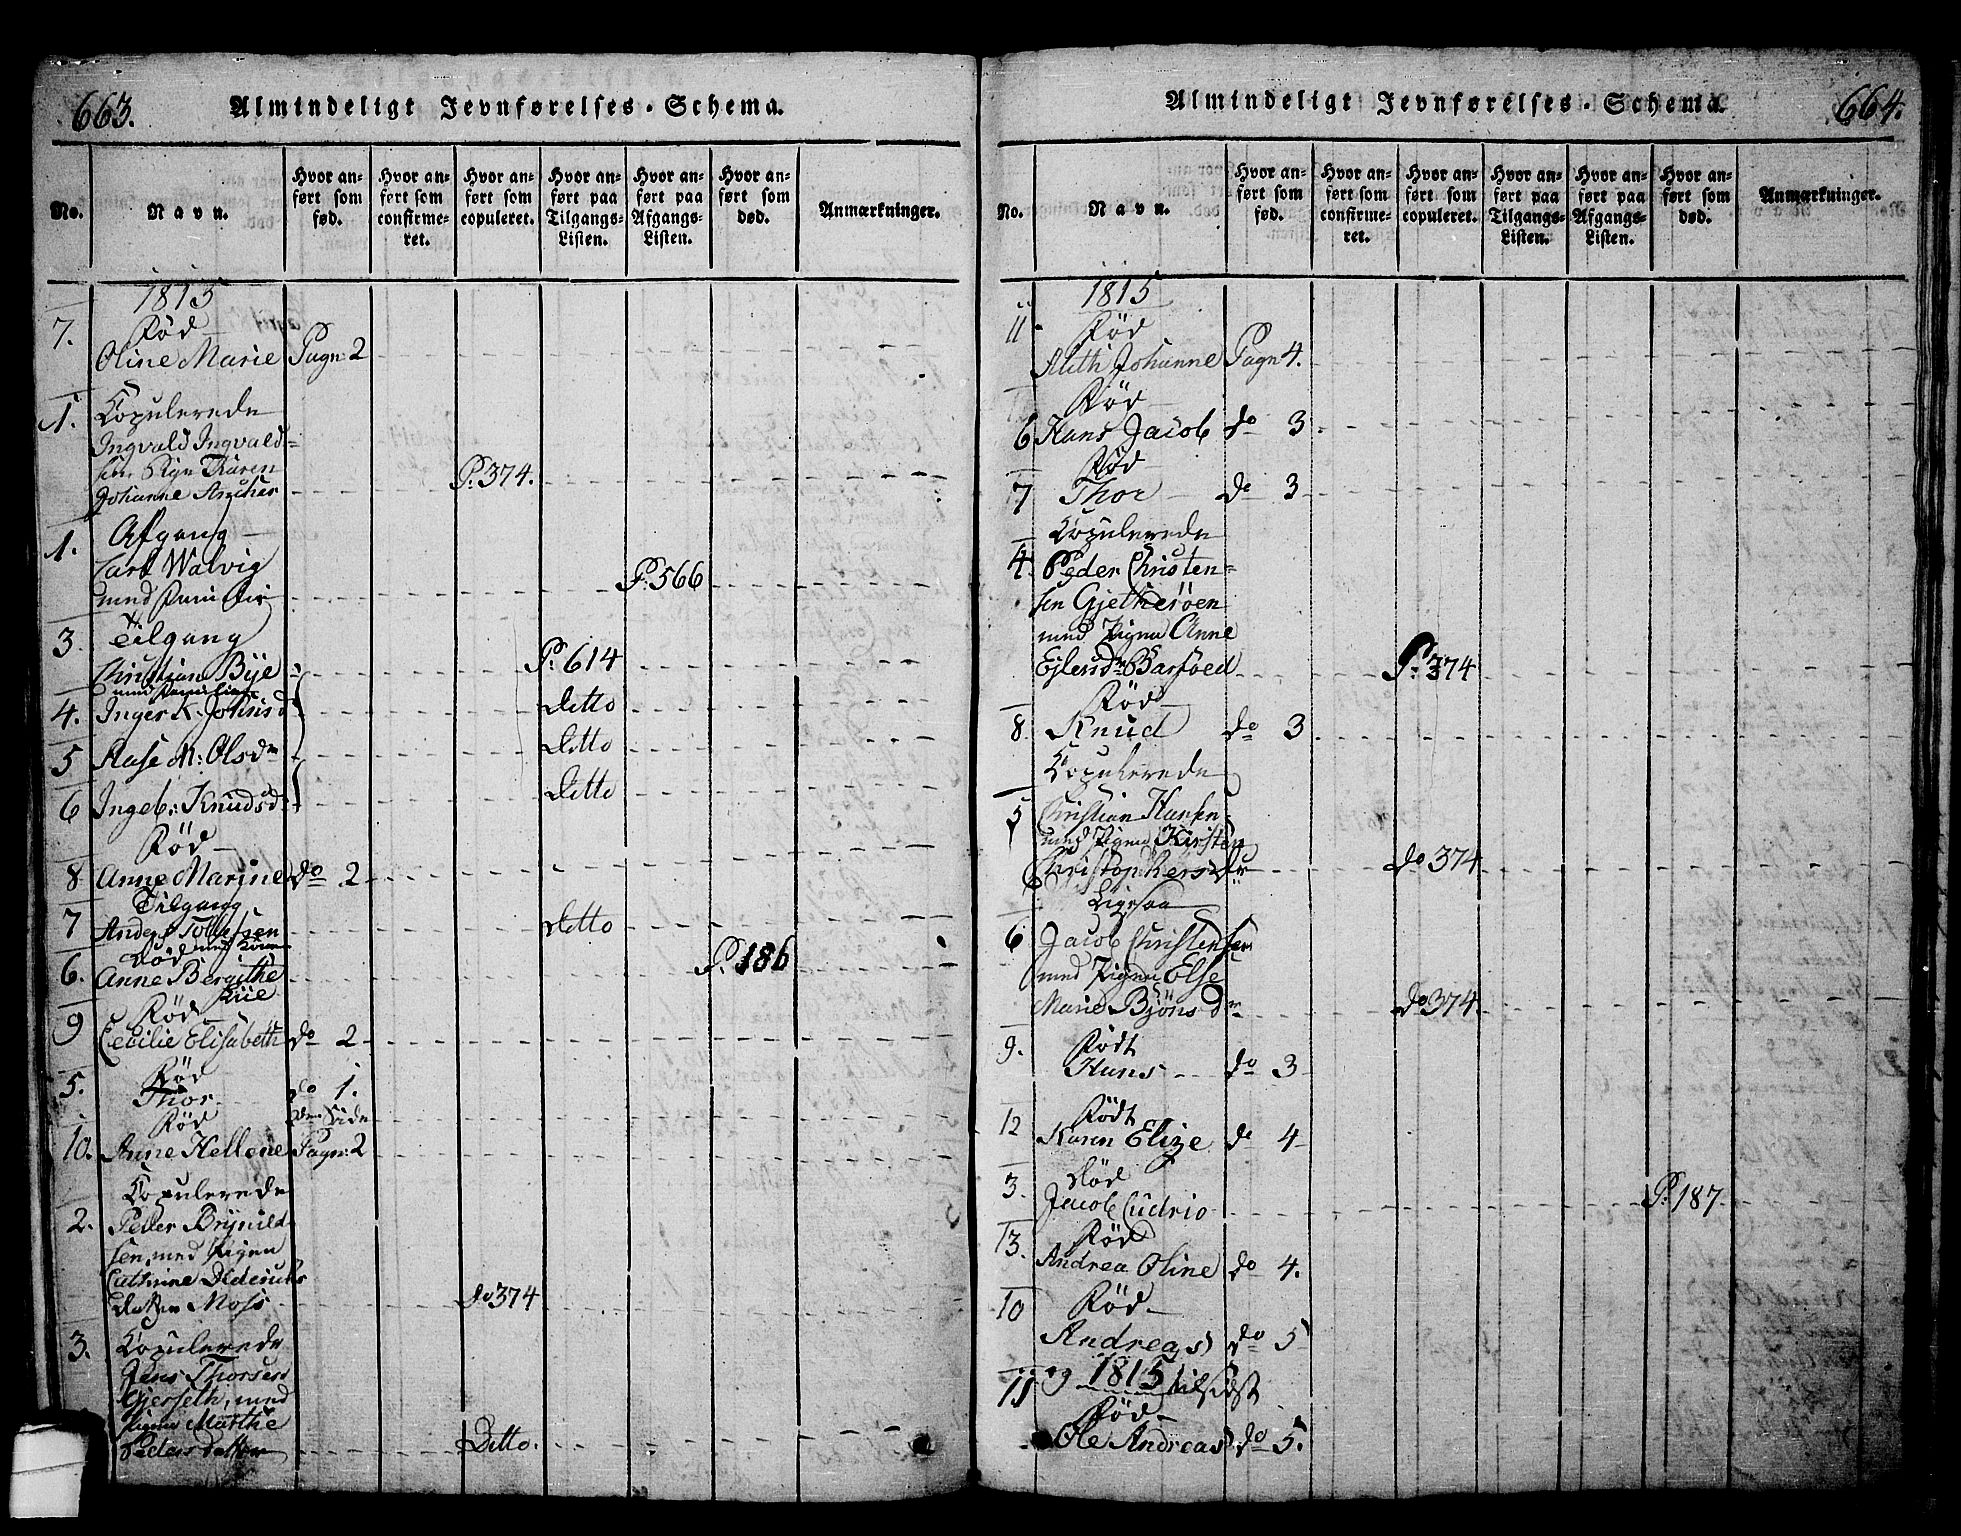 663.
Almindeligt Jevnførelses-Schema.
No.
Navn.
Hvor anført som fød.
Hvor anført som confirmeret.
Hvor anført som copuleret.
Hvor anført paa Tilgangs-Listen.
Hvor anført paa Afgangs-Listen.
Hvor anført som død.
Anmærkninger.
1815
7. Fød
Oline Marie Pagn: 2
1. Copulerede
Ingvald Ingvald=
sen Karen
Johanne P. 374.
1. Afgang
Carl Walvig
med P. 566
3. Tilgang
Christian Bye P. 614
med Familie
4. Inger K. Johnsd Ditto
5 Aase M: Olsdr Ditto
6 Ingeb: Knudsd: Ditto
Fød
8 Anne Marine do 2
Tilgang
7 Anders Ditto
Død
6. Anne Bergithe P. 186
Fød
9 Cecilie Elisabeth do 2
Fød
5. Thor do 1.
Fød
10. Anne Hellene Pagn: 2
Copulerede
2. Peder Brynild
sen, med Pigen
Cathrine
Moss do 374
3. Copulerede
Jens Thorsen
Gjerseth, med
Pigen Marthe
Peders Ditto.
Almindeligt Jevnførelses-Schema.
664.
No.
Navn.
Hvor anført som fød.
Hvor anført som confirmeret.
Hvor anført som copuleret.
Hvor anført paa Tilgangs-Listen.
Hvor anført paa Afgangs-Listen.
Hvor anført som død.
Anmærkninger.
1815
11 Fød
Alethe Johanne Pagn 4.
Fød
6 Hans Jacob do 3
Fød
7 Thor do 3
Copulerede
4. Peder Christen=
sen Gjetherøen
med Pigen Anne
Ejlersdr Barfoed P. 374
Fød
8. Knud do 3
Copulerede
5 Christian Hansen
med Pigen Kirsten
Christophersdr do 374
Ligesaa
6 Jacob Christensen
med Pigen Else
Marie Bjönsdr do 374
9. Født
Hans do 3
12 Født
Karen Elize do 4
3. Død
Jacob Cudrio P. 187
13. Fød
Andrea Oline do 4.
10 Fød
Andreas do 5
11 og 1815 tilsidst
Fød
Ole Andreas do 5.